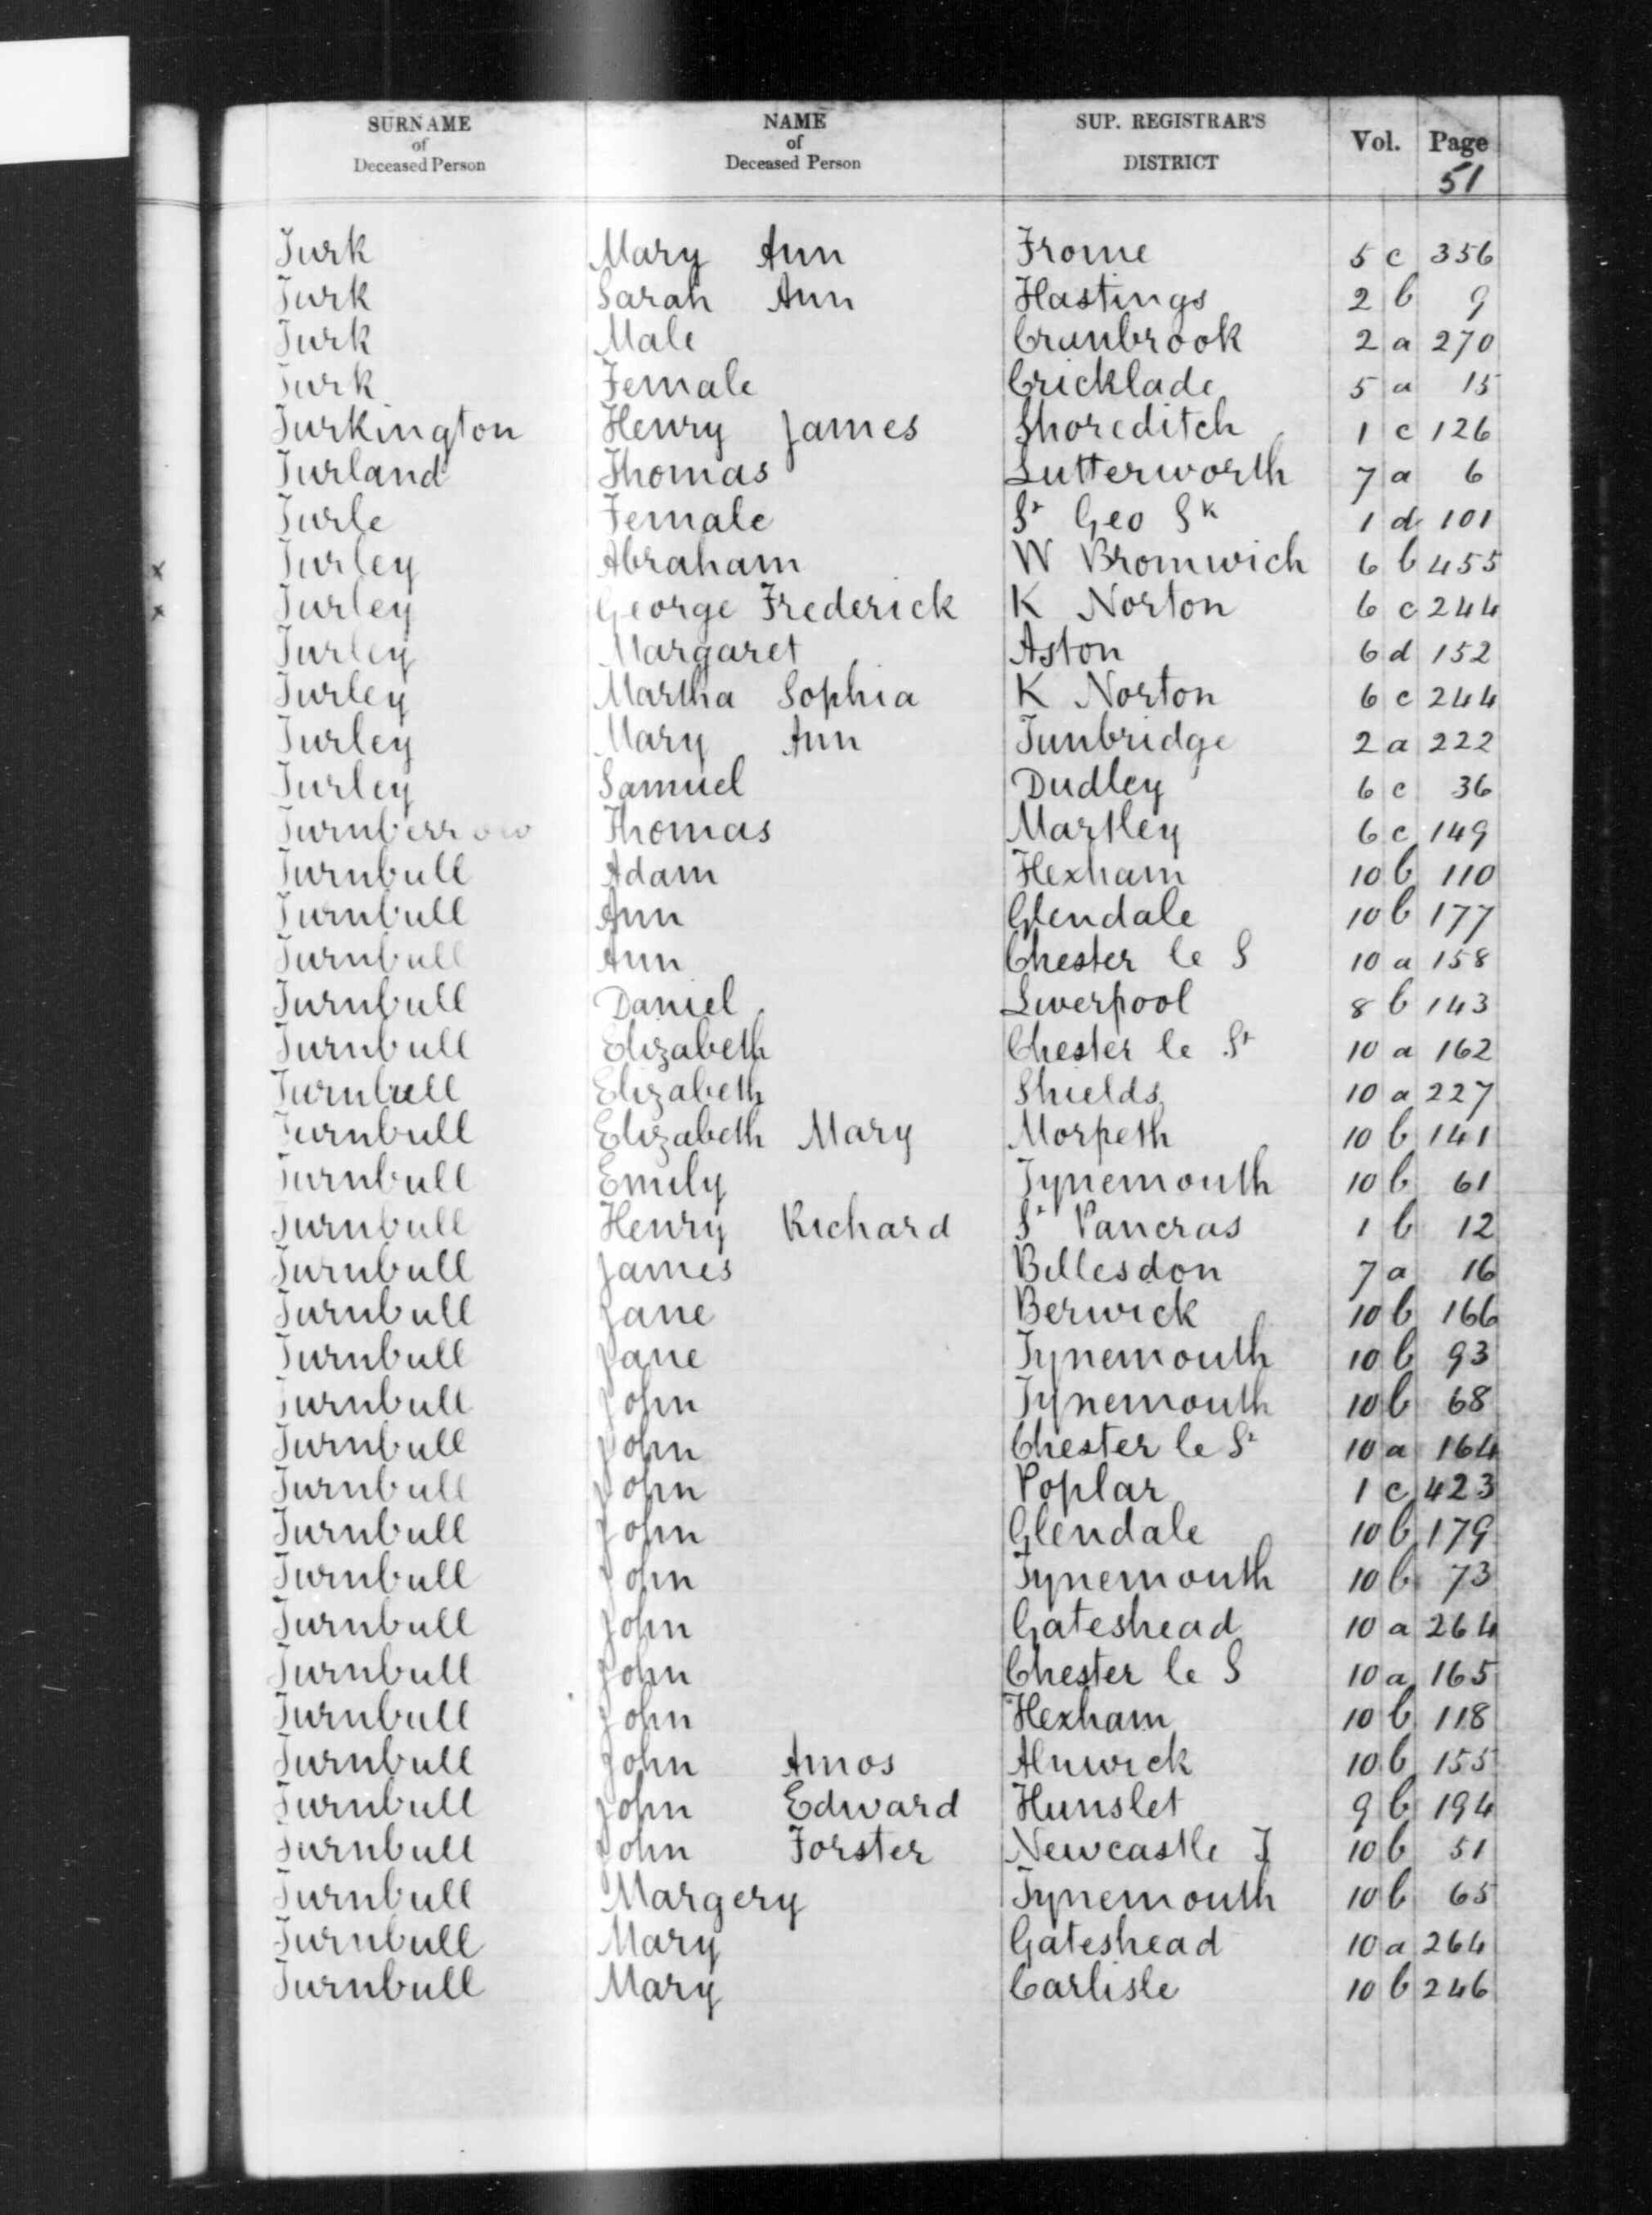 SURNAME of Deceased Person NAME of Deceased Person SUP. REGISTRAR'S DISTRICT Vol. Page
51
Turk Mary Ann Frome 5 c 356
Turk Sarah Ann Hastings 2 b 9
Turk Male Cranbrook 2 a 270
Turk Female Cricklade 5 a 15
Turkington Henry James Shoreditch 1 c 126
Turland Thomas Lutterworth 7 a 6
Turle Female St Geo Sk 1 d 101
x Turley Abraham W Bromwich 6 b 455
x Turley George Frederick K Norton 6 c 244
Turley Margaret Aston 6 d 152
Turley Martha Sophia K Norton 6 c 244
Turley Mary Ann Tunbridge 2 a 222
Turley Samuel Dudley 6 c 36
Turnberrow Thomas Martley 6 c 149
Turnbull Adam Hexham 10 b 110
Turnbull Ann Glendale 10 b 177
Turnbull Ann Chester le S 10 a 158
Turnbull Daniel Liverpool 8 b 143
Turnbull Elizabeth Chester le St 10 a 162
Turnbull Elizabeth Shields 10 a 227
Turnbull Elizabeth Mary Morpeth 10 b 141
Turnbull Emily Tynemouth 10 b 61
Turnbull Henry Richard St Pancras 1 b 12
Turnbull James Billesdon 7 a 16
Turnbull Jane Berwick 10 b 166
Turnbull Jane Tynemouth 10 b 93
Turnbull John Tynemouth 10 b 68
Turnbull John Chester le St 10 a 164
Turnbull John Poplar 1 c 423
Turnbull John Glendale 10 b 179
Turnbull John Tynemouth 10 b 73
Turnbull John Gateshead 10 a 264
Turnbull John Chester le S 10 a 165
Turnbull John Hexham 10 b 118
Turnbull John Amos Alnwick 10 b 155
Turnbull John Edward Hunslet 9 b 194
Turnbull John Forster Newcastle T 10 b 51
Turnbull Margery Tynemouth 10 b 65
Turnbull Mary Gateshead 10 a 264
Turnbull Mary Carlisle 10 b 246